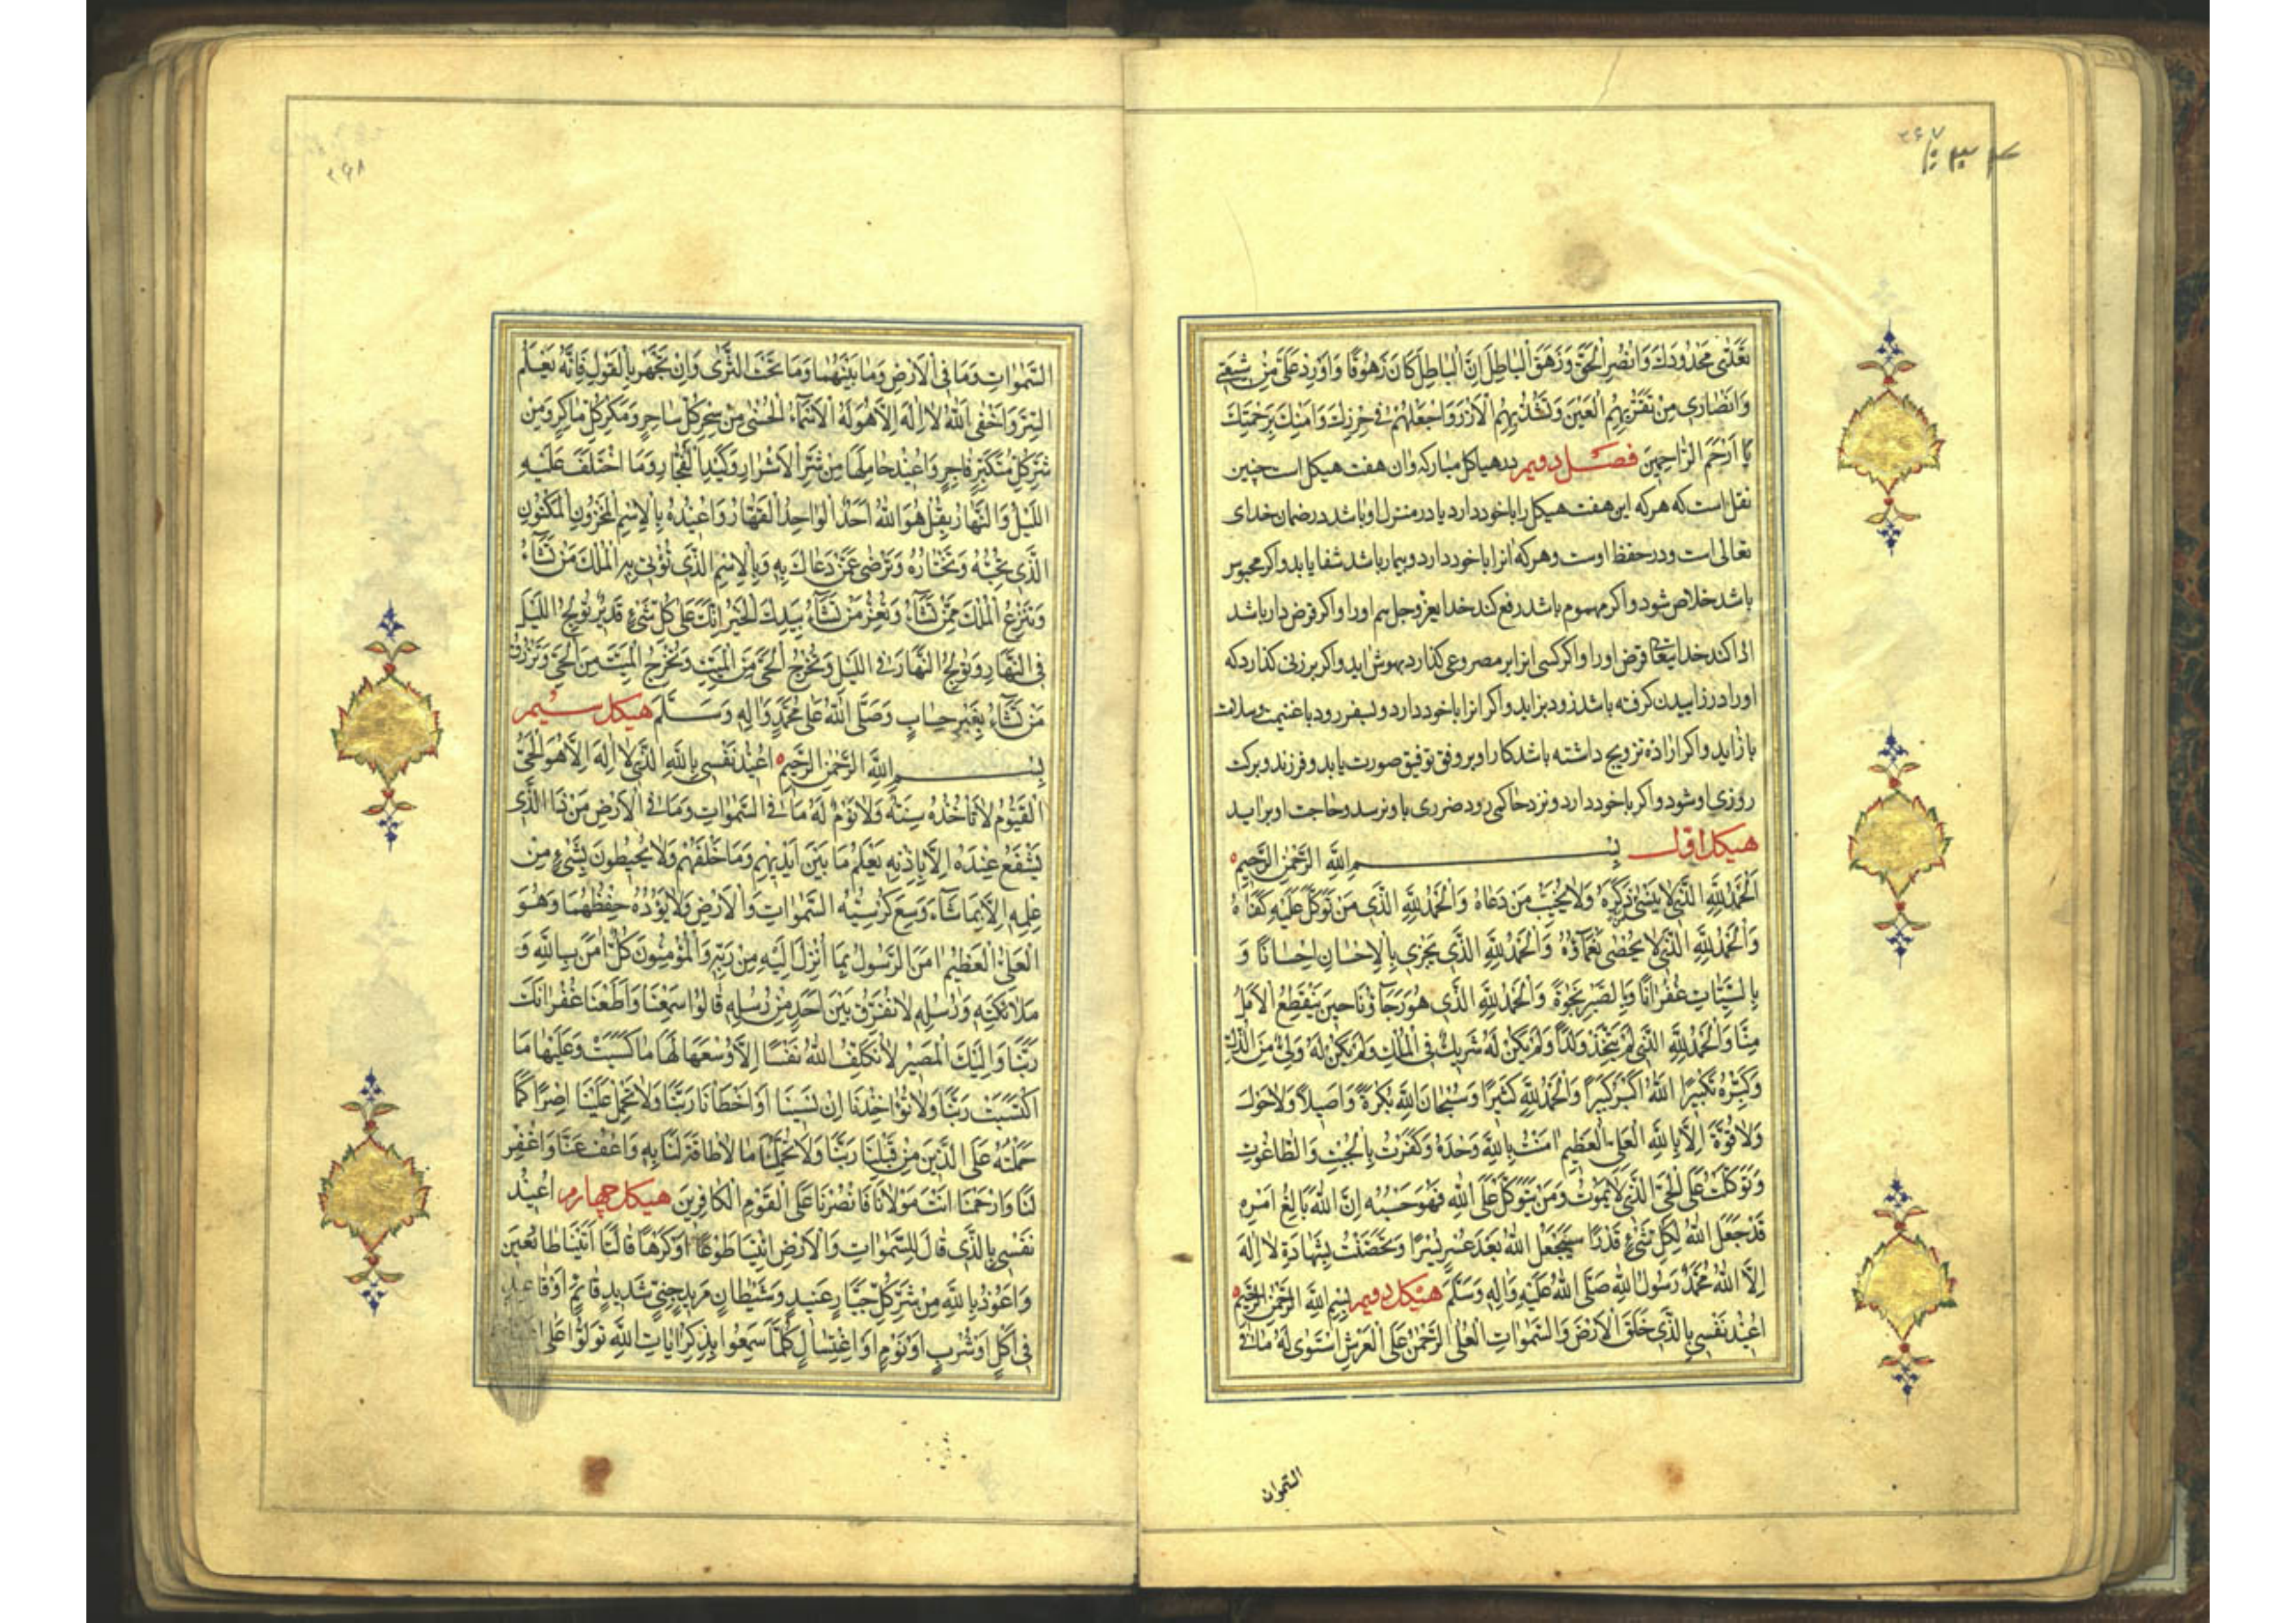 ۲۶۷
تَعَدّى مَحْدُودَكَ وَانْصُرِ الْحَقَّ وَزَهَقَ الْبَاطِلَ اِنَّ الْبَاطِلَ كَانَ زَهُوقًا وَاَوْرِدْ عَلَيَّ مِنْ شِيعَتِي
وَاَنْصَارِي مَنْ تَقَرُّ بِهِمُ الْعَيْنُ وَتَشُدُّ بِهِمُ الْاَزْرَ وَاجْعَلْهُمْ فِي حِرْزِكَ وَاَمْنِكَ بِرَحْمَتِكَ
يَا اَرْحَمَ الرَّاحِمِينَ فصل دویم در هیاکل مبارکه وان هفت هیکل است چنین
نقل است که هرکه این هفت هیکل را با خود دارد یا در منزل او باشد در ضمان خدای
تعالی است و در حفظ اوست و هرکه انرا با خود دارد و بیمار باشد شفا یابد و اکر محبوس
باشد خلاص شود و اکر مهموم باشد رفع کند خدا یعز و جل هم او را و اکر قرض دار باشد
ادا کند خدایتعا قرض او را و اکر کسی انرا بر مصروعی کذارد بهوش اید و اکر بر زنی کذارد که
او را درد زاییدن کرفته باشد زود بزاید و اکر انرا با خود دارد و بسفر رود با غنیمت و سلامت
باز اید و اکر ارادهٔ تزویج داشته باشد کار او بر وفق توفیق صورت یابد و فرزند و برکت
روزی او شود و اکر با خود دارد و نزد حاکمی رود ضرری باو نرسد و حاجت او براید
هیکل اول بِسْمِ اللّٰهِ الرَّحْمٰنِ الرَّحِيمِ
اَلْحَمْدُ لِلّٰهِ الَّذِي لَا يَنْسٰى ذِكْرَهُ وَلَا يُخَيِّبُ مَنْ دَعَاهُ وَالْحَمْدُ لِلّٰهِ الَّذِي مَنْ تَوَكَّلَ عَلَيْهِ كَفَاهُ
وَالْحَمْدُ لِلّٰهِ الَّذِي لَا يُحْصٰى نَعْمَاؤُهُ وَالْحَمْدُ لِلّٰهِ الَّذِي يَجْزِي بِالْاِحْسَانِ اِحْسَانًا وَ
بِالسَّيِّئَاتِ غُفْرَانًا وَبِالصَّبْرِ نَجْوَةً وَالْحَمْدُ لِلّٰهِ الَّذِي هُوَ رَجَاؤُنَا حِينَ يَنْقَطِعُ الْاَمَلُ
مِنَّا وَالْحَمْدُ لِلّٰهِ الَّذِي لَمْ يَتَّخِذْ وَلَدًا وَلَمْ يَكُنْ لَهُ شَرِيكٌ فِي الْمُلْكِ وَلَمْ يَكُنْ لَهُ وَلِيٌّ مِنَ الذُّلِّ
وَكَبِّرْهُ تَكْبِيرًا اَللّٰهُ اَكْبَرُ كَبِيرًا وَالْحَمْدُ لِلّٰهِ كَثِيرًا وَسُبْحَانَ اللّٰهِ بُكْرَةً وَاَصِيلًا وَلَا حَوْلَ
وَلَا قُوَّةَ اِلَّا بِاللّٰهِ الْعَلِيِّ الْعَظِيمِ اٰمَنْتُ بِاللّٰهِ وَحْدَهُ وَكَفَرْتُ بِالْجِبْتِ وَالطَّاغُوتِ
وَتَوَكَّلْتُ عَلَى الْحَيِّ الَّذِي لَا يَمُوتُ وَمَنْ يَتَوَكَّلْ عَلَى اللّٰهِ فَهُوَ حَسْبُهُ اِنَّ اللّٰهَ بَالِغُ اَمْرِهِ
قَدْ جَعَلَ اللّٰهُ لِكُلِّ شَيْءٍ قَدْرًا سَيَجْعَلُ اللّٰهُ بَعْدَ عُسْرٍ يُسْرًا وَتَحَصَّنْتُ بِشَهَادَةِ لَا اِلٰهَ
اِلَّا اللّٰهُ مُحَمَّدٌ رَسُولُ اللّٰهِ صَلَّى اللّٰهُ عَلَيْهِ وَاٰلِهِ وَسَلَّمَ هیکل دویم بِسْمِ اللّٰهِ الرَّحْمٰنِ الرَّحِيمِ
اُعِيذُ نَفْسِي بِالَّذِي خَلَقَ الْاَرْضَ وَالسَّمٰوَاتِ الْعُلَى الرَّحْمٰنُ عَلَى الْعَرْشِ اسْتَوٰى لَهُ مَا فِي
السموات
۲۶۸
السَّمٰوَاتِ وَمَا فِي الْاَرْضِ وَمَا بَيْنَهُمَا وَمَا تَحْتَ الثَّرٰى وَاِنْ تَجْهَرْ بِالْقَوْلِ فَاِنَّهُ يَعْلَمُ
السِّرَّ وَاَخْفٰى اَللّٰهُ لَا اِلٰهَ اِلَّا هُوَ لَهُ الْاَسْمَاءُ الْحُسْنٰى مِنْ سِحْرِ كُلِّ سَاحِرٍ وَمَكْرِ كُلِّ مَاكِرٍ وَمِنْ
شَرِّ كُلِّ مُتَكَبِّرٍ فَاجِرٍ وَاُعِيذُ حَامِلَهَا مِنْ شَرِّ الْاَشْرَارِ وَكَيْدِ الْفُجَّارِ وَمَا اخْتَلَفَ عَلَيْهِ
اللَّيْلُ وَالنَّهَارُ بِقُلْ هُوَ اللّٰهُ اَحَدٌ الْوَاحِدُ الْقَهَّارُ وَاُعِيذُهُ بِالْاِسْمِ الْمَخْزُونِ الْمَكْنُونِ
الَّذِي تُحِبُّهُ وَتَخْتَارُهُ وَتَرْضٰى عَمَّنْ دَعَاكَ بِهِ وَبِالْاِسْمِ الَّذِي تُؤْتِي بِهِ الْمُلْكَ مَنْ تَشَاءُ
وَتَنْزِعُ الْمُلْكَ مِمَّنْ تَشَاءُ وَتُعِزُّ مَنْ تَشَاءُ بِيَدِكَ الْخَيْرُ اِنَّكَ عَلٰى كُلِّ شَيْءٍ قَدِيرٌ تُولِجُ اللَّيْلَ
فِي النَّهَارِ وَتُولِجُ النَّهَارَ فِي اللَّيْلِ وَتُخْرِجُ الْحَيَّ مِنَ الْمَيِّتِ وَتُخْرِجُ الْمَيِّتَ مِنَ الْحَيِّ وَتَرْزُقُ
مَنْ تَشَاءُ بِغَيْرِ حِسَابٍ وَصَلَّى اللّٰهُ عَلٰى مُحَمَّدٍ وَاٰلِهِ وَسَلَّمَ هیکل سیم
بِسْمِ اللّٰهِ الرَّحْمٰنِ الرَّحِيمِ اُعِيذُ نَفْسِي بِاللّٰهِ الَّذِي لَا اِلٰهَ اِلَّا هُوَ الْحَيُّ
الْقَيُّومُ لَا تَاْخُذُهُ سِنَةٌ وَلَا نَوْمٌ لَهُ مَا فِي السَّمٰوَاتِ وَمَا فِي الْاَرْضِ مَنْ ذَا الَّذِي
يَشْفَعُ عِنْدَهُ اِلَّا بِاِذْنِهِ يَعْلَمُ مَا بَيْنَ اَيْدِيهِمْ وَمَا خَلْفَهُمْ وَلَا يُحِيطُونَ بِشَيْءٍ مِنْ
عِلْمِهِ اِلَّا بِمَا شَاءَ وَسِعَ كُرْسِيُّهُ السَّمٰوَاتِ وَالْاَرْضَ وَلَا يَؤُدُهُ حِفْظُهُمَا وَهُوَ
الْعَلِيُّ الْعَظِيمُ اٰمَنَ الرَّسُولُ بِمَا اُنْزِلَ اِلَيْهِ مِنْ رَبِّهِ وَالْمُؤْمِنُونَ كُلٌّ اٰمَنَ بِاللّٰهِ وَ
مَلَائِكَتِهِ وَرُسُلِهِ لَا نُفَرِّقُ بَيْنَ اَحَدٍ مِنْ رُسُلِهِ قَالُوا سَمِعْنَا وَاَطَعْنَا غُفْرَانَكَ
رَبَّنَا وَاِلَيْكَ الْمَصِيرُ لَا يُكَلِّفُ اللّٰهُ نَفْسًا اِلَّا وُسْعَهَا لَهَا مَا كَسَبَتْ وَعَلَيْهَا مَا
اكْتَسَبَتْ رَبَّنَا وَلَا تُؤَاخِذْنَا اِنْ نَسِينَا اَوْ اَخْطَاْنَا رَبَّنَا وَلَا تَحْمِلْ عَلَيْنَا اِصْرًا كَمَا
حَمَلْتَهُ عَلَى الَّذِينَ مِنْ قَبْلِنَا رَبَّنَا وَلَا تُحَمِّلْنَا مَا لَا طَاقَةَ لَنَا بِهِ وَاعْفُ عَنَّا وَاغْفِرْ
لَنَا وَارْحَمْنَا اَنْتَ مَوْلَانَا فَانْصُرْنَا عَلَى الْقَوْمِ الْكَافِرِينَ هیکل چهارم اُعِيذُ
نَفْسِي بِالَّذِي قَالَ لِلسَّمٰوَاتِ وَالْاَرْضِ ائْتِيَا طَوْعًا اَوْ كَرْهًا قَالَتَا اَتَيْنَا طَائِعِينَ
وَاَعُوذُ بِاللّٰهِ مِنْ شَرِّ كُلِّ جَبَّارٍ عَنِيدٍ وَشَيْطَانٍ مَرِيدٍ جِنِّيٍّ شَدِيدٍ قَائِمٍ اَوْ قَاعِدٍ
فِي اَكْلٍ اَوْ شُرْبٍ اَوْ نَوْمٍ اَوِ اغْتِسَالٍ كُلَّمَا سَمِعُوا بِذِكْرِ اٰيَاتِ اللّٰهِ تَوَلَّوْا عَلٰى